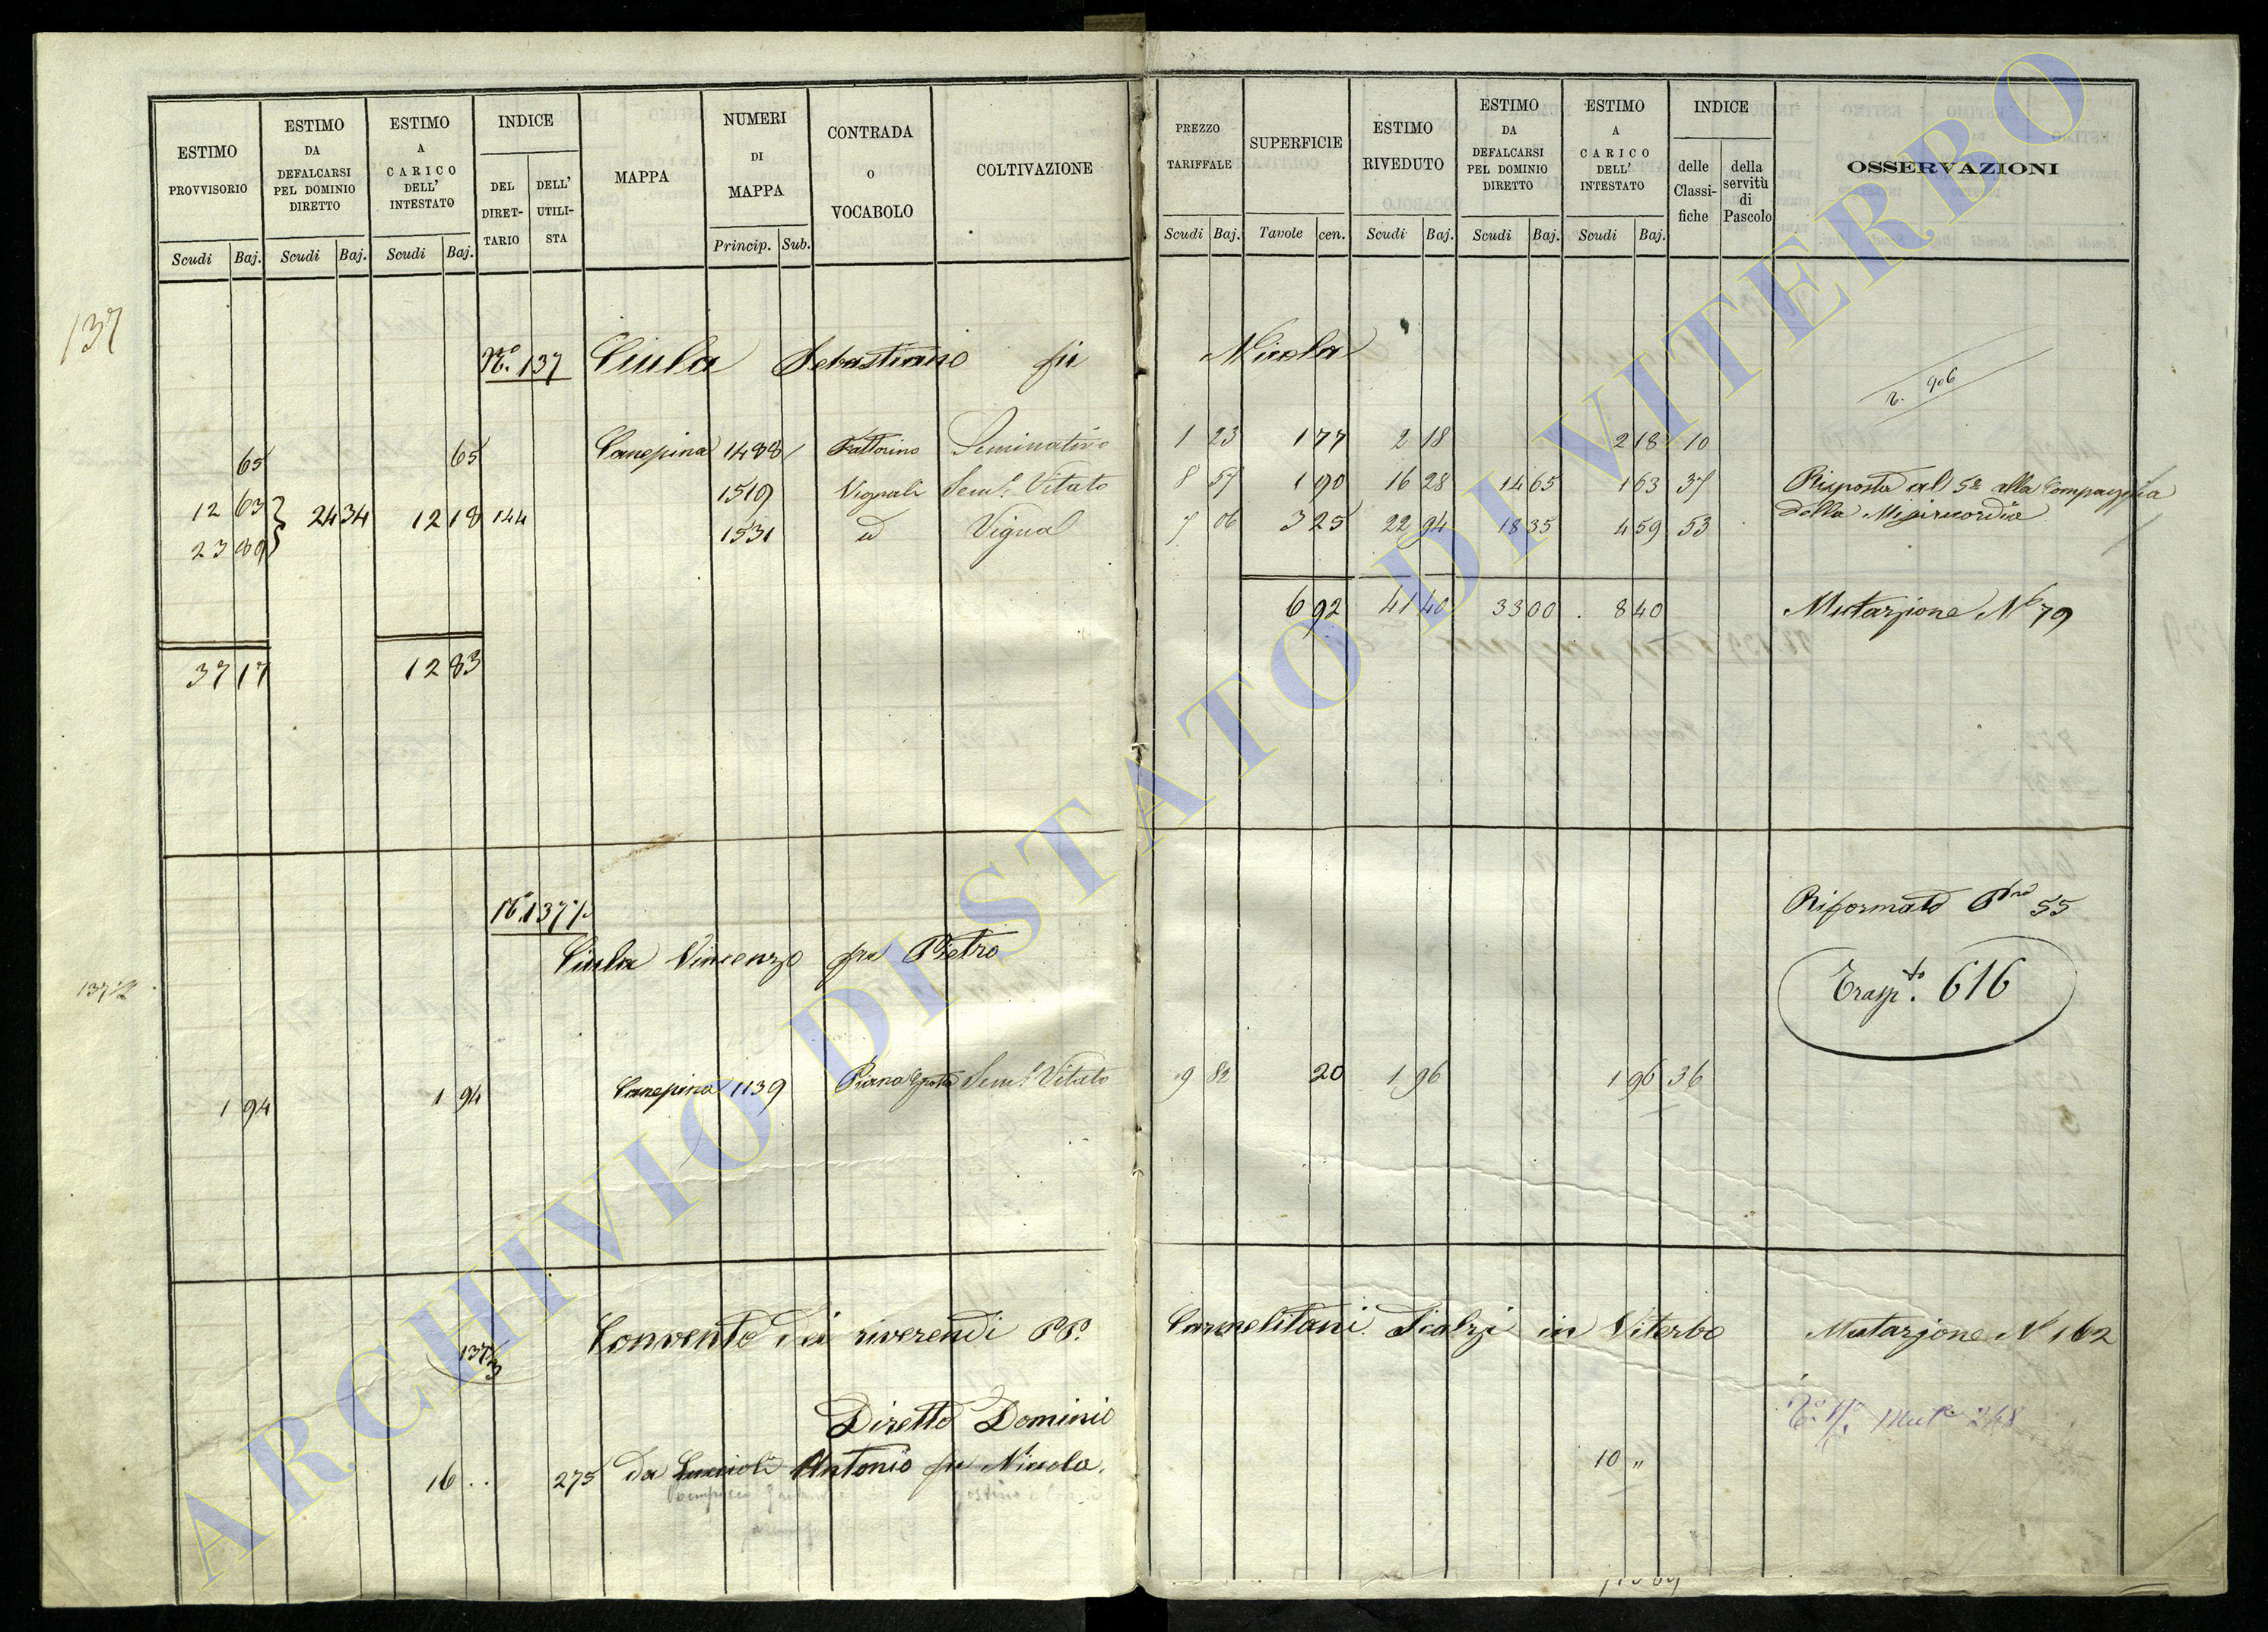 ESTIMO PROVVISORIO
ESTIMO DA DEFALCARSI PEL DOMINIO DIRETTO
ESTIMO A CARICO DELL' INTESTATO
INDICE
DEL DIRET-TARIO
DELL' UTILI-STA
MAPPA
NUMERI DI MAPPA
CONTRADA O VOCABOLO
COLTIVAZIONE
Scudi Baj. Scudi Baj. Scudi Baj. Princip. Sub.
PREZZO TARIFFALE
SUPERFICIE
ESTIMO RIVEDUTO
ESTIMO DA DEFALCARSI PEL DOMINIO DIRETTO
ESTIMO A CARICO DELL' INTESTATO
INDICE
delle Classi-fiche
della servitù di Pascolo
OSSERVAZIONI
Scudi Baj. Tavole cen. Scudi Baj. Scudi Baj. Scudi Baj.
137
N.° 137 Ciula Sebastiano fu Nicola
906
65 65 Canepina 1488 Fattorino Seminativo 1 23 1 77 2 18 2 18 10
12 63 24 34 12 18 144 1519 Vignali Sem.° Vitato 8 57 1 90 16 28 14 65 1 63 37 Risposta al 5° alla Compagnia
23 89 1531 id Vignal 7 06 3 25 22 94 18 35 4 59 53 della Misericordia
6 92 41 40 33 00 8 40 Mutazione N° 79
37 17 12 83
N° 137/2
Riformato 55
Ciula Vincenzo fu Pietro
137/2
Trasp.to 616
1 94 1 94 Canepina 1139 Piana Sem.° Vitato 9 82 20 1 96 1 96 36
137/3 Convento dei riverendi PP. Carmelitani Scalzi in Viterbo Mutazione N° 162
Mut.e 248
Diretto Dominio
16 .. 275 da Luccioli Antonio fu Nicola. 10 "
ARCHIVIO DI STATO DI VITERBO